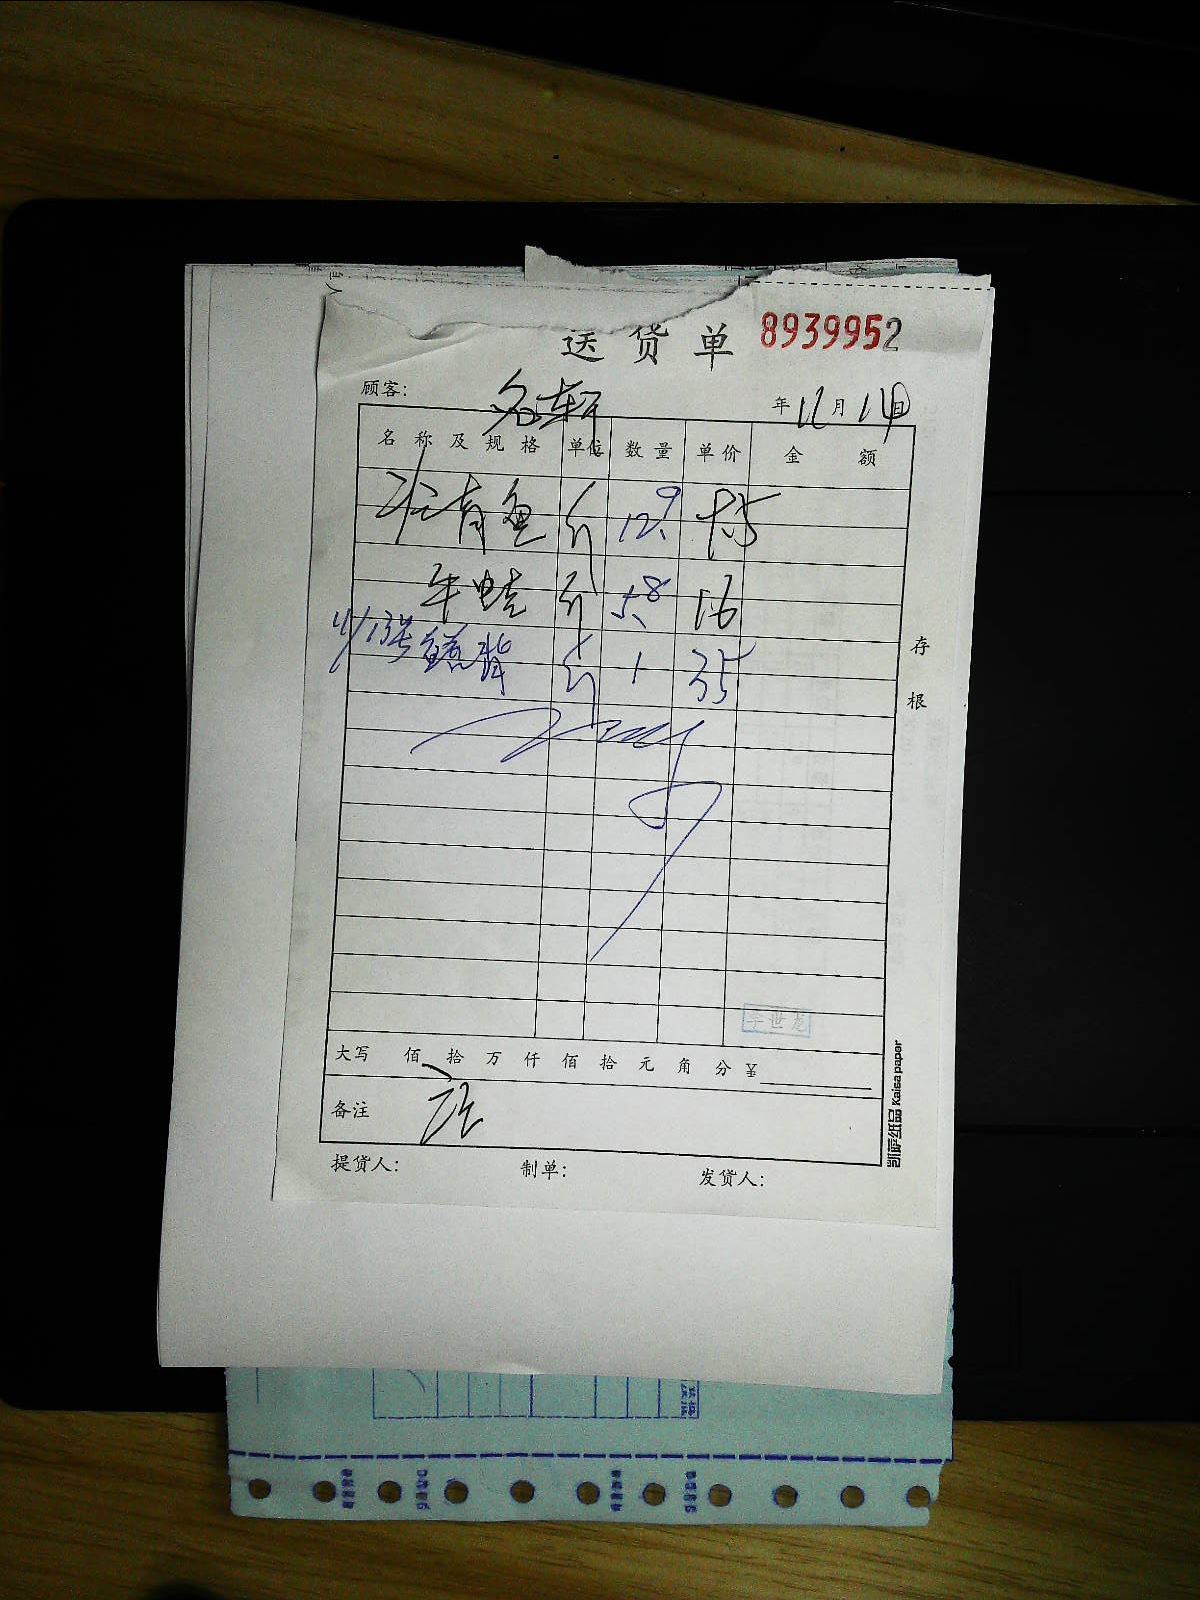 送货单 8939952
顾客: 名轩 年12月14日
名称及规格 单位 数量 单价 金额
青鱼 斤 12.9 7.5
牛蛙 斤 5.8 16
斤 1 35
存根
李世龙
大写 佰拾万仟佰拾元角分¥
备注
提货人: 制单: 发货人:
凯萨纸品 Kaisa paper